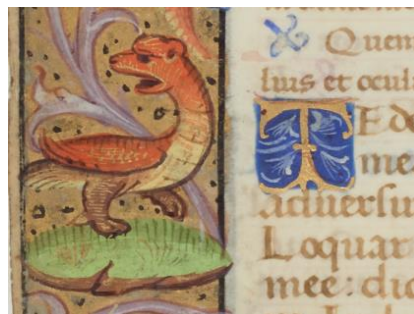 Quem
luis et ocul
TEd
me
aduersu
Loquar
mee: dic